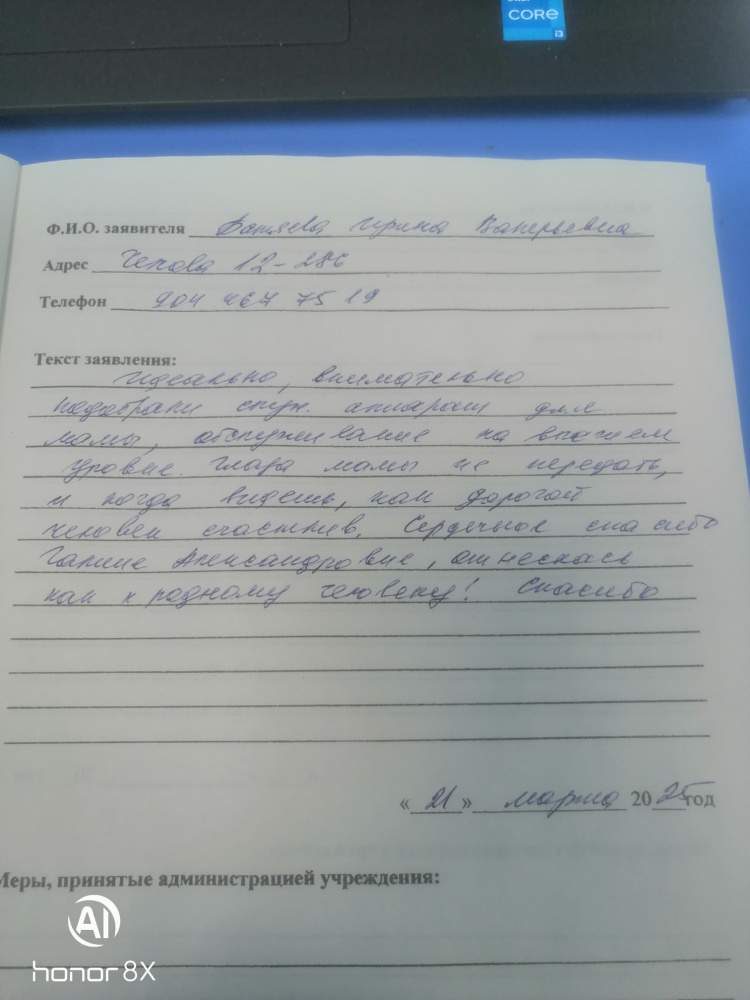 CORE
i3
Ф.И.О. заявителя Ирина Валерьевна
Адрес Чехова 12-286
Телефон 904 467 75 19
Текст заявления:
Идеально, внимательно
подобрали слух. аппараты для
мамы, обслуживание на высшем
уровне. Глаза мамы не передать,
и когда видешь, как дорогой
человек счастлив. Сердечное спасибо
Галине Александровне, отнеслась
как к родному человеку! Спасибо
«21» марта 2025 год
Меры, принятые администрацией учреждения:
AI
honor 8X